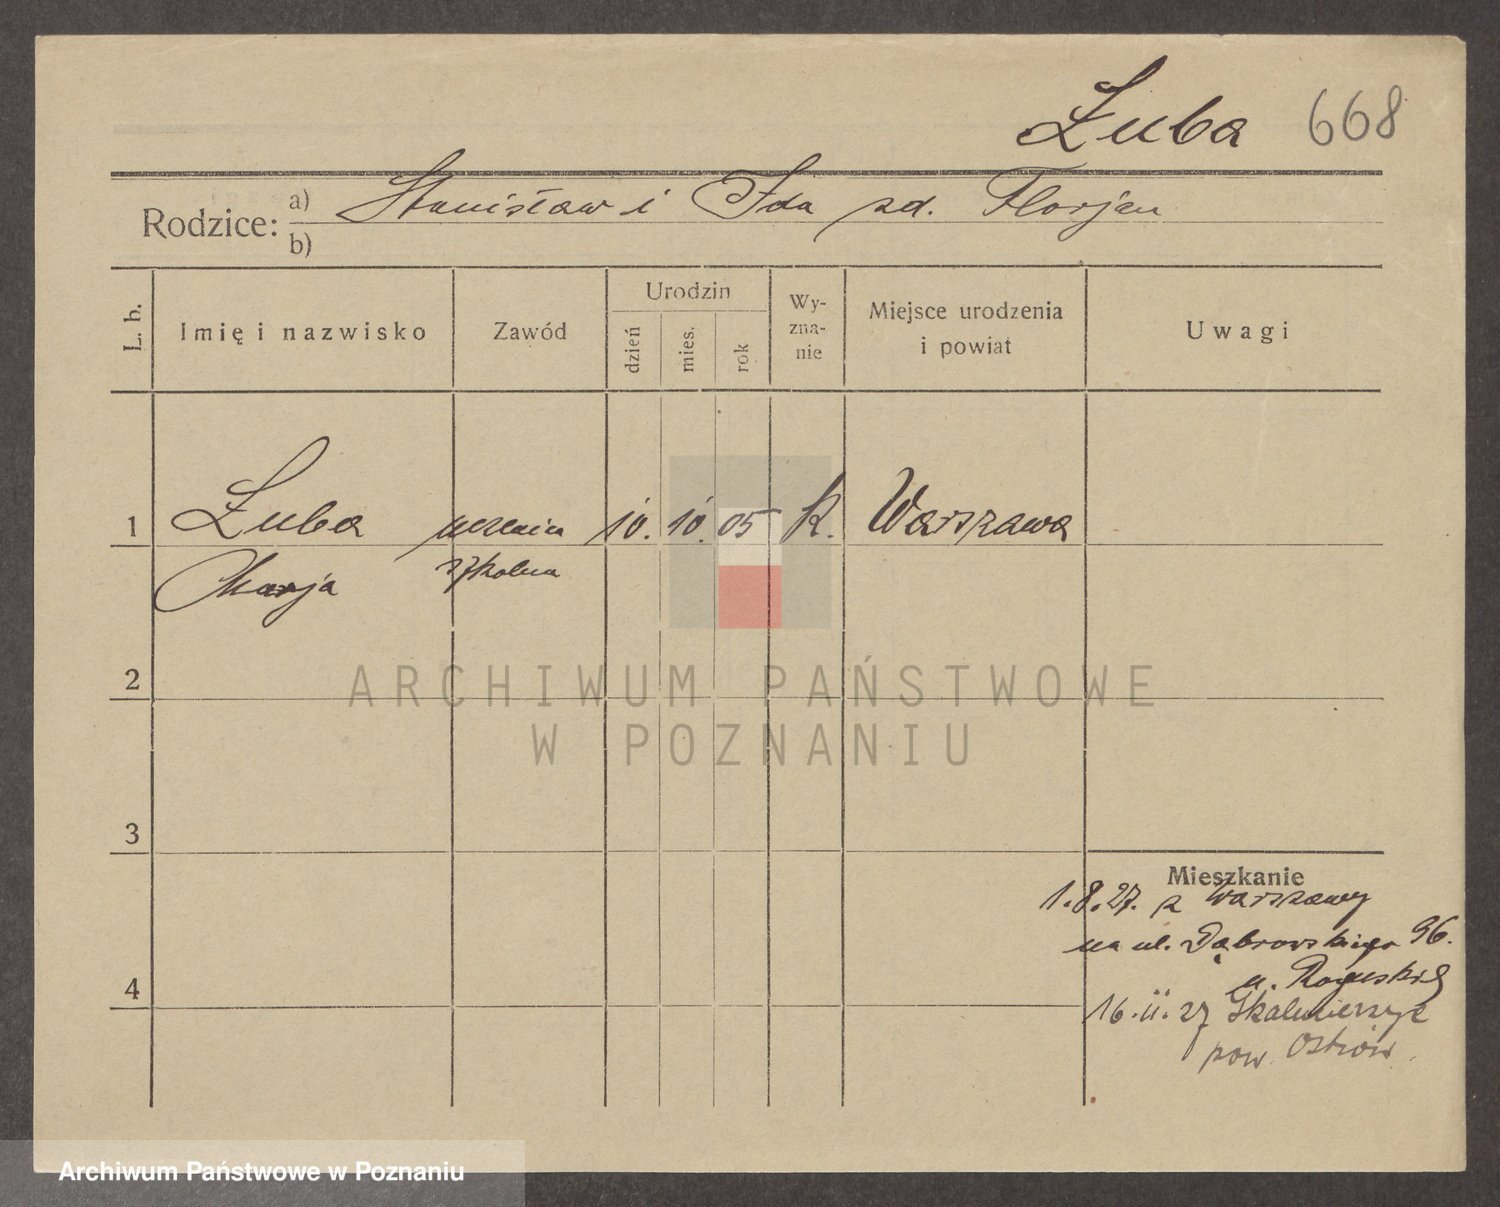 Żuba 668
Rodzice: a) Stanisław i Ida zd. Florjan
b)
L. b.
Imię i nazwisko
Zawód
Urodzin
dzień
mies.
rok
Wy-
zna-
nie
Miejsce urodzenia
i powiat
Uwagi
1 Żuba uczenica 10. 10. 05 k. Warszawa
Marja szkolna
2
ARCHIWUM PAŃSTWOWE
W POZNANIU
3
Mieszkanie
1.8.27. z Warszawy
na ul. Dąbrowskiego 96.
u.
4
16.11.27 Skalmierzyc
pow. Ostrów.
Archiwum Państwowe w Poznaniu